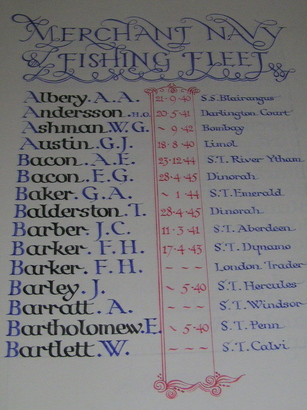 MERCHANT NAVY
& FISHING FLEET
Albery. A. A. 21·9·40 S.S. Blairangus
Andersson. H.O. 20·5·41 Darlington Court
Ashman. W. G. ~ 9·42 Bombay
Austin. G. J. 18·8·40 Limol
Bacon. A. E. 23·12·44 S.T. River Ytham
Bacon. E. G. 28·4·45 Dinorah
Baker. G. A. ~ 1·44 S.T. Emerald
Balderston. T. 28·4·45 Dinorah
Barber. J. C. 11·3·41 S.T. Aberdeen
Barker. F. H. 17·4·43 S.T. Dynamo
Barker. F. H. ~ ~ ~ London Trader
Barley. J. ~ 5·40 S.T. Hercules
Barratt. A. ~ ~ ~ S.T. Windsor
Bartholomew. E. ~ 5·40 S.T. Penn
Bartlett. W. ~ ~ ~ S.T. Calvi